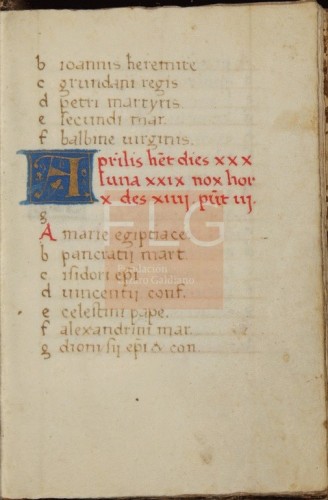 b ioannis heremite
c grundani regis
d petri martyris.
e secundi mar.
f balbine uirginis.
Aprilis hẽt dies xxx
luna xxix nox hor
x des xiiii pũt iij.
g
A marie egiptiace
b pancratij mart
c isidori epi
d vincentij conf.
e celestini pape.
f alexandrini mar
g dionisij epi & con.
FLG
Fundación
Lázaro Galdiano